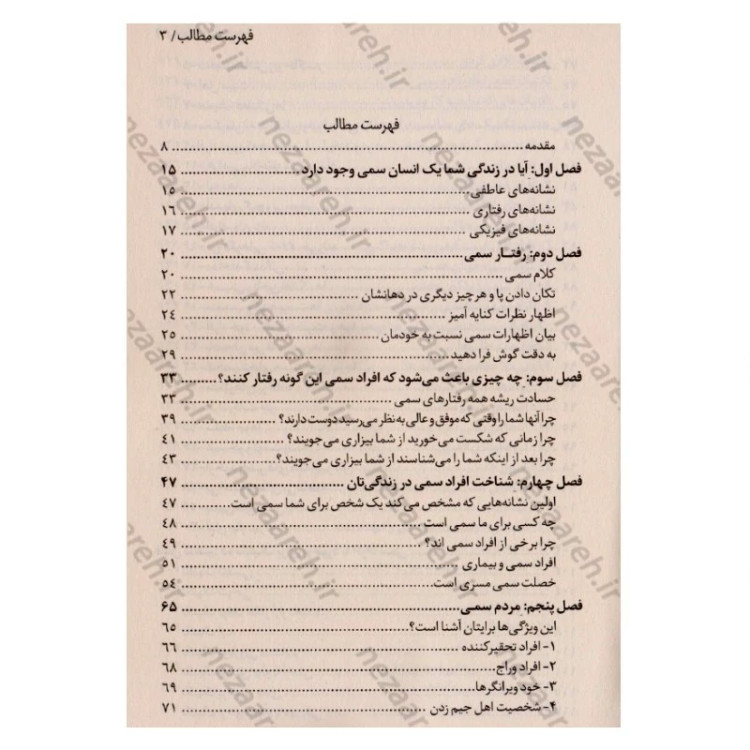 فهرست مطالب/ ۳
فهرست مطالب
مقدمه ........ ۸
فصل اول: آیا در زندگی شما یک انسان سمی وجود دارد ........ ۱۵
نشانه‌های عاطفی ........ ۱۵
نشانه‌های رفتاری ........ ۱۶
نشانه‌های فیزیکی ........ ۱۷
فصل دوم: رفتـار سمی ........ ۲۰
کلام سمی ........ ۲۰
تکان دادن پا و هر چیز دیگری در دهانشان ........ ۲۲
اظهار نظرات کنایه آمیز ........ ۲۴
بیان اظهارات سمی نسبت به خودمان ........ ۲۵
به دقت گوش فرا دهید ........ ۲۹
فصل سوم: چه چیزی باعث می‌شود که افراد سمی این گونه رفتار کنند؟ ........ ۳۳
حسادت ریشه همه رفتارهای سمی ........ ۳۳
چرا آنها شما را وقتی که موفق و عالی به نظر می‌رسید دوست دارند؟ ........ ۳۹
چرا زمانی که شکست می‌خورید از شما بیزاری می‌جویند؟ ........ ۴۱
چرا بعد از اینکه شما را می‌شناسند از شما بیزاری می‌جویند؟ ........ ۴۳
فصل چهارم: شناخت افراد سمی در زندگی‌تان ........ ۴۷
اولین نشانه‌هایی که مشخص می کند یک شخص برای شما سمی است ........ ۴۷
چه کسی برای ما سمی است ........ ۴۸
چرا برخی از افراد سمی اند؟ ........ ۴۹
افراد سمی و بیماری ........ ۵۱
خصلت سمی مسری است ........ ۵۴
فصل پنجم: مردم سمی ........ ۶۵
این ویژگی‌ها برایتان آشنا است؟ ........ ۶۵
۱- افراد تحقیرکننده ........ ۶۶
۲- افراد وراج ........ ۶۸
۳- خود ویرانگرها ........ ۶۹
۴- شخصیت اهل جیم زدن ........ ۷۱
nezaareh.ir